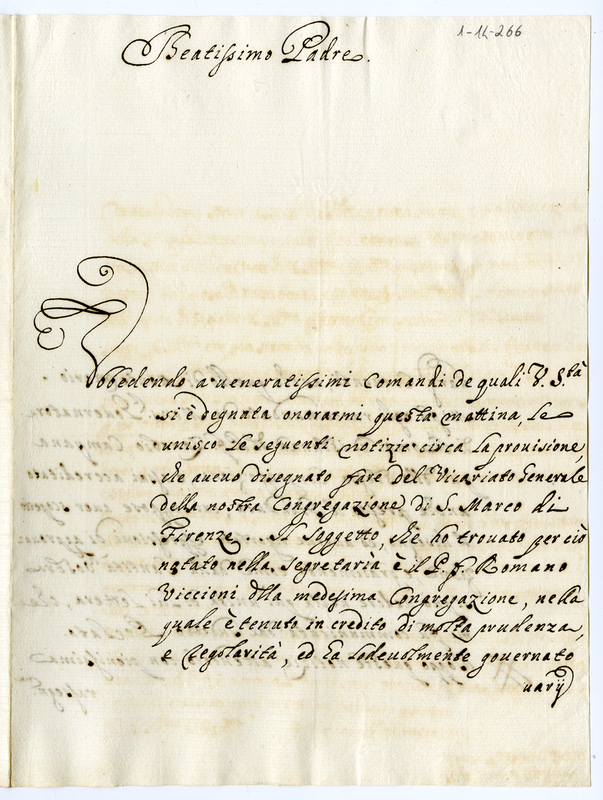 1-14-266
Beatissimo Padre.
Obbedendo a veneratissimi Comandi de quali V. S.tà
si è degnata onorarmi questa mattina, le
unisco le seguenti notizie circa la provisione,
che avevo disegnato fare del Vicariato Generale
della nostra Congregazione di S. Marco di
Firenze. Il Soggetto, che ho trovato per ciò
notato nella Segretaria è il P. f. Romano
Viccioni dlla medesima Congregazione, nella
quale è tenuto in credito di molta prudenza,
e regolarità, ed ha lodevolmente governato
varij